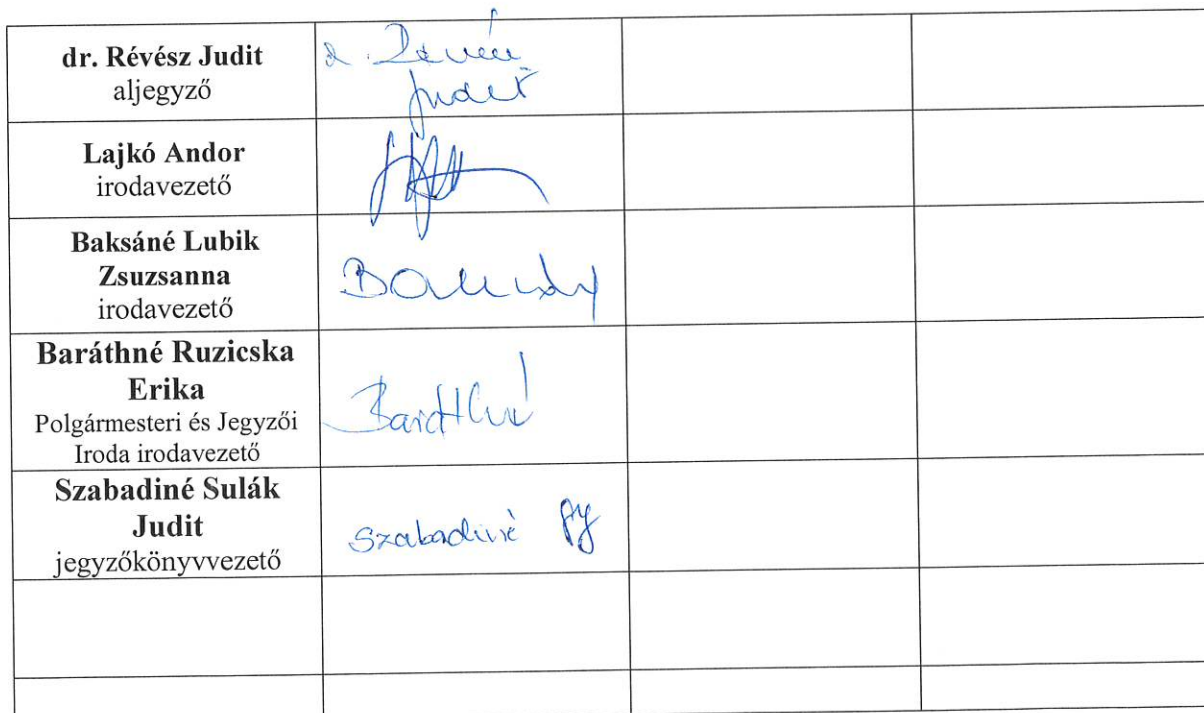 dr. Révész Judit
aljegyző
Judit
Lajkó Andor
irodavezető
Baksáné Lubik
Zsuzsanna
irodavezető
Baráthné Ruzicska
Erika
Polgármesteri és Jegyzői
Iroda irodavezető
Szabadiné Sulák
Judit
jegyzőkönyvvezető
Szabadiné